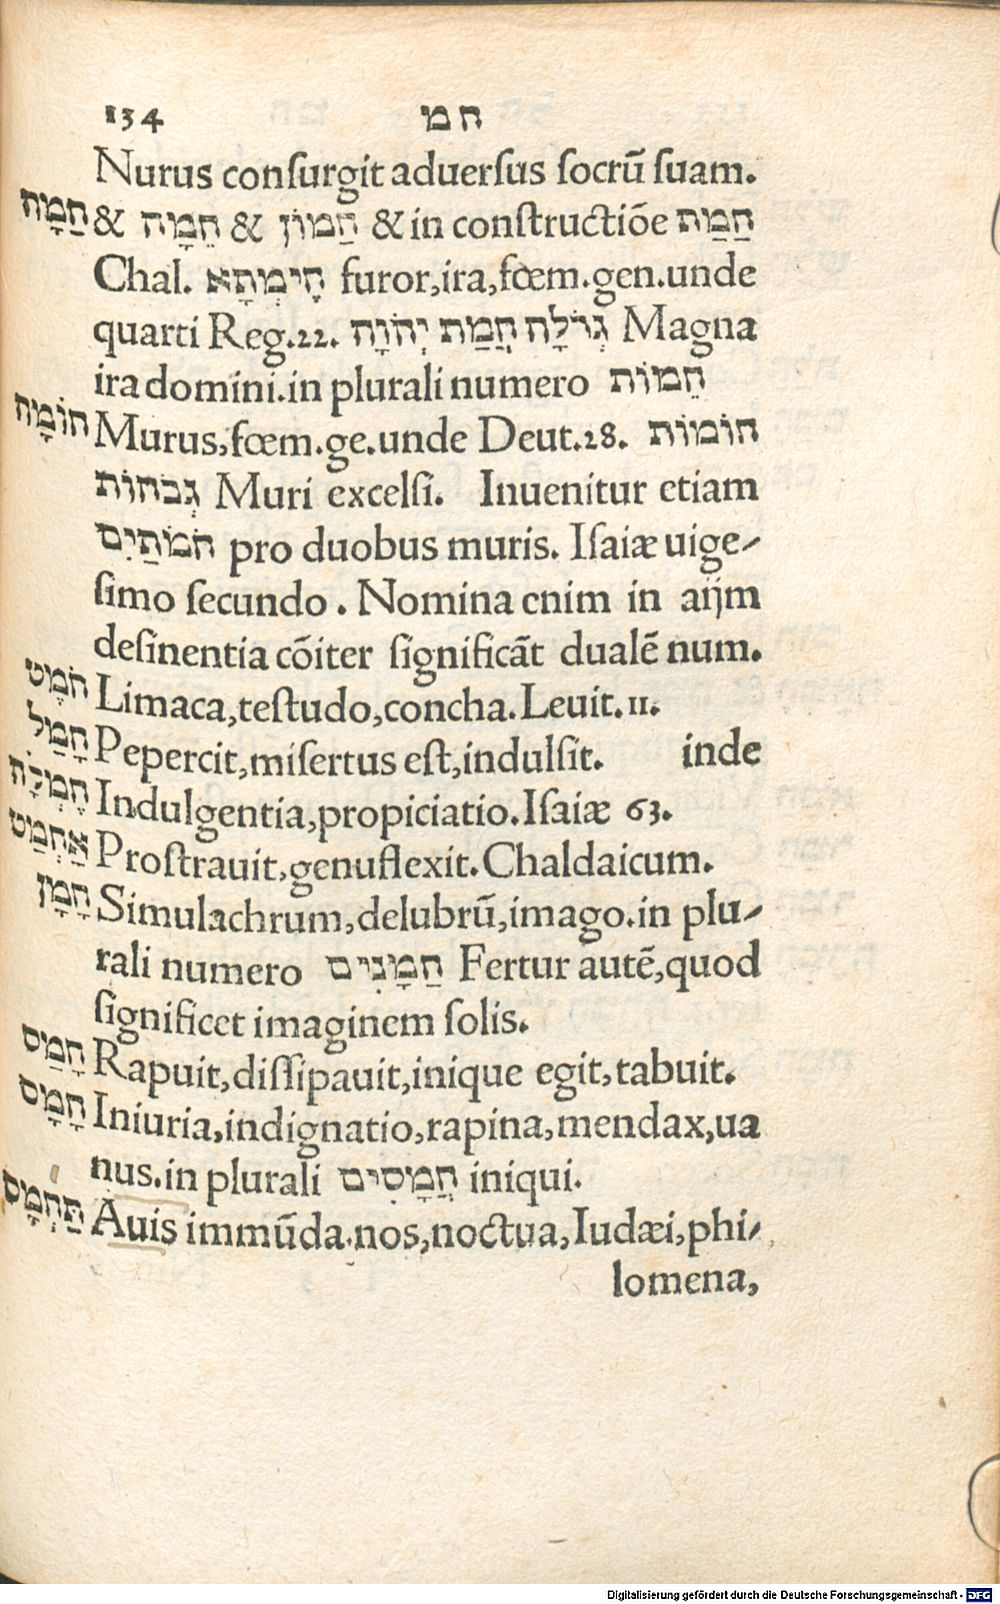 134 חמ
Nurus consurgit aduersus socrũ suam.
חַמָּה & חֵמָה & חַמּוֹן & in constructiõe חַמַּת
Chal. חֶימְתָא furor, ira, fœm. gen. unde
quarti Reg. 22. גְּדֹלָה חֲמַת יְהֹוָה Magna
ira domini. in plurali numero חֵמוֹת
חוֹמָה Murus, fœm. ge. unde Deut. 28. חוֹמוֹת
גְּבֹהוֹת Muri excelsi. Inuenitur etiam
חֹמֹתַיִם pro duobus muris. Isaiæ uige-
simo secundo. Nomina enim in aijm
desinentia cõiter significãt dualẽ num.
חֹמֶט Limaca, testudo, concha. Leuit. 11.
חָמַל Pepercit, misertus est, indulsit. inde
חֶמְלָה Indulgentia, propiciatio. Isaiæ 63.
אַחְמַט Prostrauit, genuflexit. Chaldaicum.
חָמָן Simulachrum, delubrũ, imago. in plu-
rali numero חַמָּנִים Fertur autẽ, quod
significet imaginem solis.
חָמַס Rapuit, dissipauit, inique egit, tabuit.
חָמָס Iniuria, indignatio, rapina, mendax, ua
nus. in plurali חֲמָסִים iniqui.
תַּחְמָס Auis immũda. nos, noctua, Iudæi, phi-
lomena,
Digitalisierung gefördert durch die Deutsche Forschungsgemeinschaft - DFG